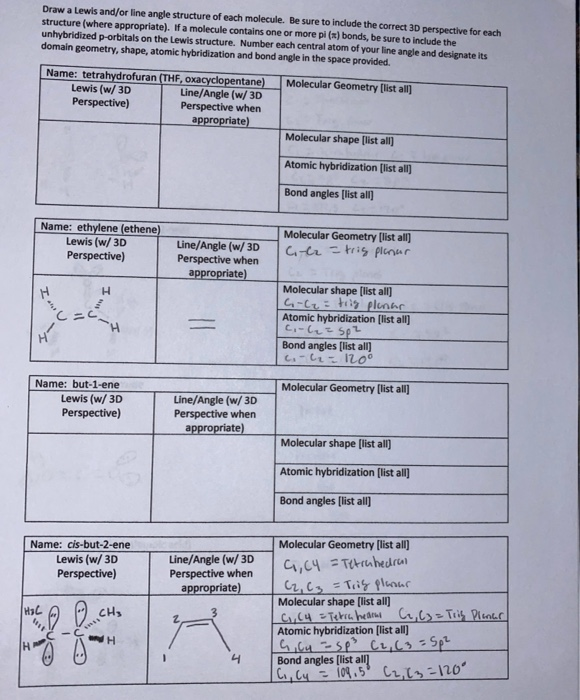 Draw a Lewis and/or line angle structure of each molecule. Be sure to include the correct 3D perspective for each
structure (where appropriate). If a molecule contains one or more pi (π) bonds, be sure to include the
unhybridized p-orbitals on the Lewis structure. Number each central atom of your line angle and designate its
domain geometry, shape, atomic hybridization and bond angle in the space provided.
Name: tetrahydrofuran (THF, oxacyclopentane)
Lewis (w/ 3D
Perspective)
Line/Angle (w/ 3D
Perspective when
appropriate)
Molecular Geometry [list all]
Molecular shape [list all]
Atomic hybridization [list all]
Bond angles [list all]
Name: ethylene (ethene)
Lewis (w/ 3D
Perspective)
Line/Angle (w/ 3D
Perspective when
appropriate)
Molecular Geometry [list all]
C1-C2 = trig planar
Molecular shape [list all]
C1-C2 = trig planar
Atomic hybridization [list all]
C1-C2 = sp2
Bond angles [list all]
C1-C2 = 120°
H H
C=C
H H
Name: but-1-ene
Lewis (w/ 3D
Perspective)
Line/Angle (w/ 3D
Perspective when
appropriate)
Molecular Geometry [list all]
Molecular shape [list all]
Atomic hybridization [list all]
Bond angles [list all]
Name: cis-but-2-ene
Lewis (w/ 3D
Perspective)
Line/Angle (w/ 3D
Perspective when
appropriate)
Molecular Geometry [list all]
C1,C4 = Tetrahedral
C2,C3 = Trig planar
Molecular shape [list all]
C1,C4 = Tetrahedral C2,C3 = Trig Planar
Atomic hybridization [list all]
C1,C4 = sp3 C2,C3 = Sp2
Bond angles [list all]
C1,C4 = 109.5° C2,C3 = 120°
H3C CH3
C-C
H H
2 3
1 4